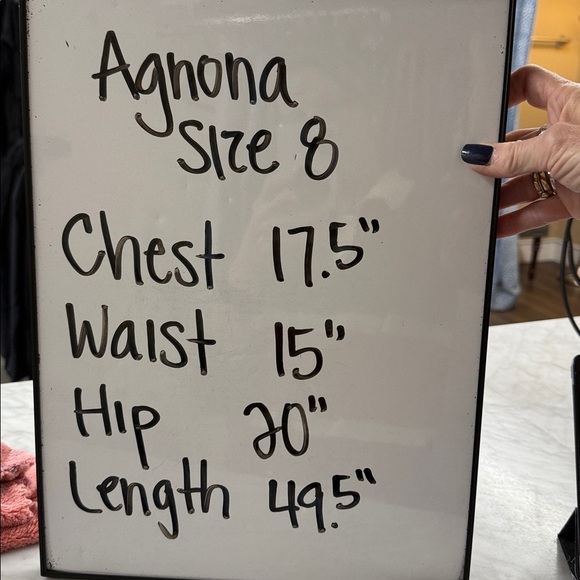 Agnona
Size 8
Chest 17.5"
Waist 15"
Hip 20"
Length 49.5"